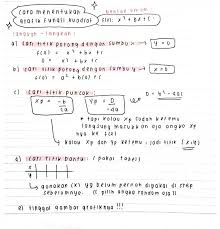 Cara menentukan
Grafik Fungsi Kuadrat
bentuk umum
f(x): x² + bx + c
langkah - langkah:
a) cari titik potong dengan sumbu x → y = 0
0 = x² + bx + c
b) cari titik potong dengan sumbu y → x = 0
f(0) = x² + b(0) + c
c) cari titik puncak:
xp = -b / 2a
yp = D / -4a
D = b² - 4ac
* tapi kalau xp sudah ketemu
langsung masukan aja angka xp
ke f(x)
kalau xp dan yp ketemu : jadi titik (x,y)
d) cari titik bantu: (pakai tabel)
x
y
gunakan (x) yg belum pernah dipakai di step
sebelumnya. (pilih angka random aja)
e) tinggal gambar grafiknya !!!